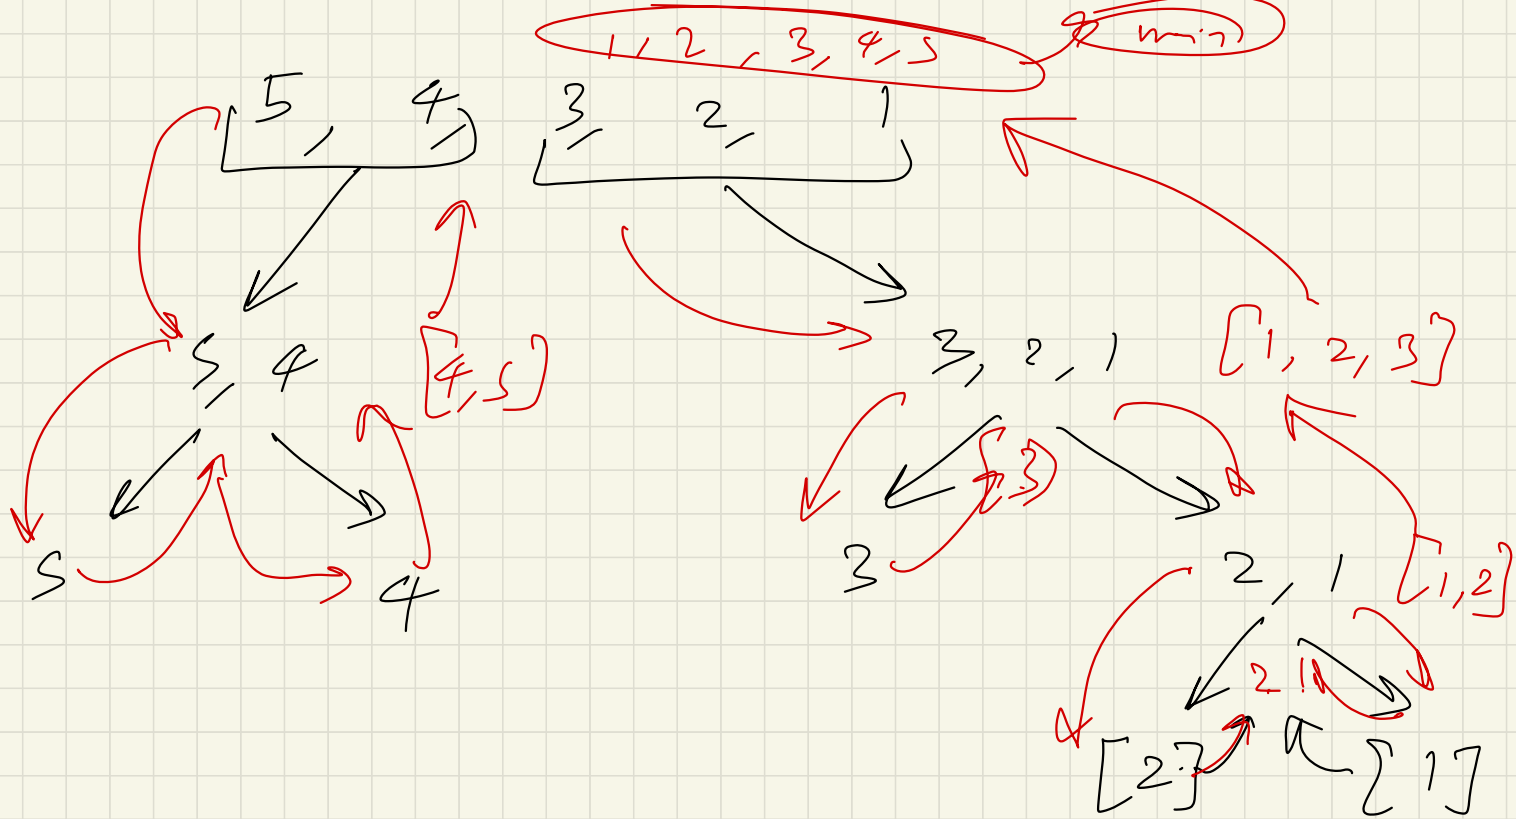 1, 2, 3, 4, 5 min
5, 4, 3, 2, 1
5, 4 [4, 5] 3, 2, 1 [1, 2, 3]
[3]
5 4 3 2, 1 [1, 2]
2 1
[2] [1]